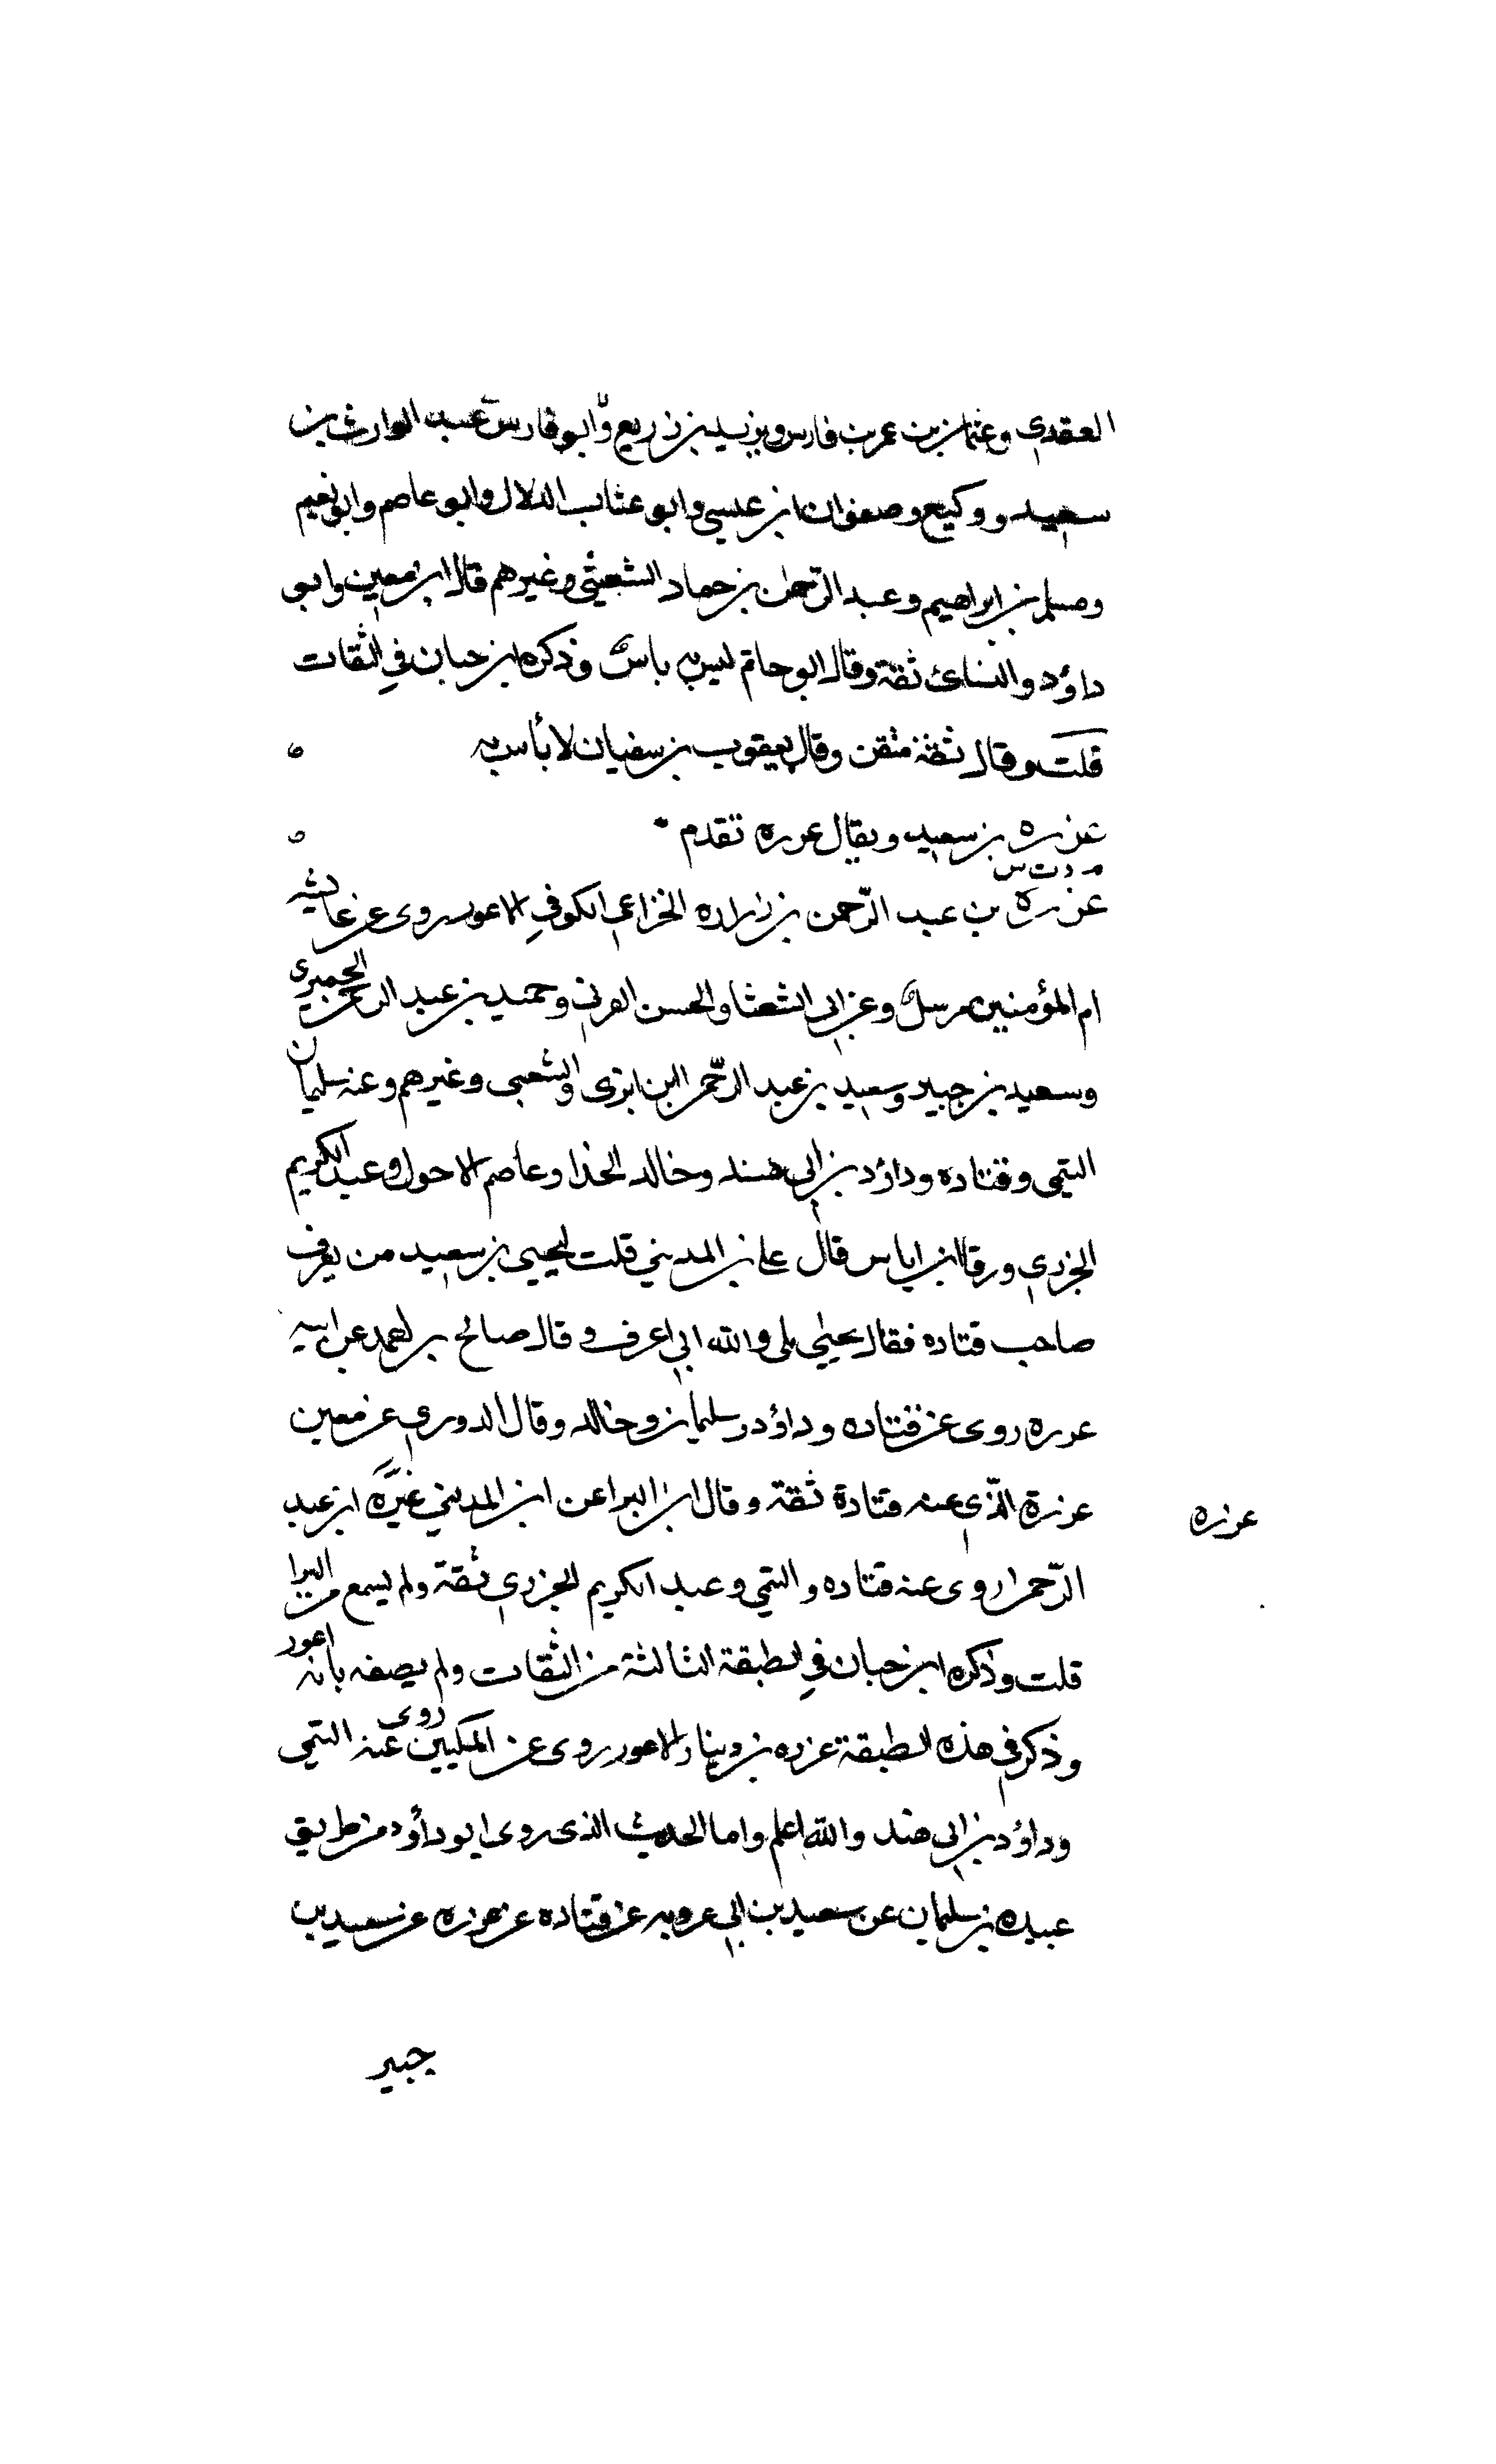 العقدي وعثمان بن عمر بن فارس ويزيد بن زريع وابو فارس عبد الوارث بن
سعيد ووكيع وصفوان ابن عيسى وابو عتاب الدلال وابو عاصم وابو نعيم
ومسلم بن ابراهيم وعبد الرحمن بن حماد الشعيثي وغيرهم قال ابن معين وابو
داؤد والنسائ ثقة وقال ابو حاتم ليس به باس وذكره ابن حبان في الثقات
قلت وقال ثقة متقن وقال يعقوب بن سفيان لا بأس به ه
عزره بن سعيد ويقال عروه تقدم ه
م د ت س
عزره بن عبد الرّحمن بن زراره الخزاعي الكوفي الاعور روى عن عائشه
ام المؤمنين مرسل وعن ابي الشعثا والحسن العرني وحميد بن عبد الرحمن الحميري
وسعيد بن جبير وسعيد بن عبد الرّحمن ابن ابزى والشعبى وغيرهم وعنه سليمان
التيمى وقتاده وداؤد بن ابي هند وخالد الحذا وعاصم الاحول وعبد الكريم
الجزري ورقا ابن اياس قال علي بن المديني قلت ليحيى بن سعيد من يعرف
صاحب قتاده فقال يحيى بلى والله اني اعرفه وقال صالح بن احمد عن ابيه
عزره روى عن قتاده وداؤد وسليمان وخالد وقال الدوري عن معين
عزرة الذّي عنه قتادة ثقة وقال ابن البرا عن ابن المديني عزره ابن عبد
عزره
الرّحمن روى عنه قتاده والتيمي وعبد الكريم الجزري ثقة ولم يسمع من البرا
قلت وذكره ابن حبان في الطبقة الثالثة من الثقات ولم يصفه بانه اعور
وذكر في هذه الطبقة عزره بن دينار الاعور روى عن المكيين روى عنه التيمي
وداؤد بن ابي هند والله اعلم واما الحديث الذى روى ابو داؤد من طريق
عبيده بن سليمان عن سعيد بن ابي عروبه عن قتاده عن عزره عن سعيد بن
جبير